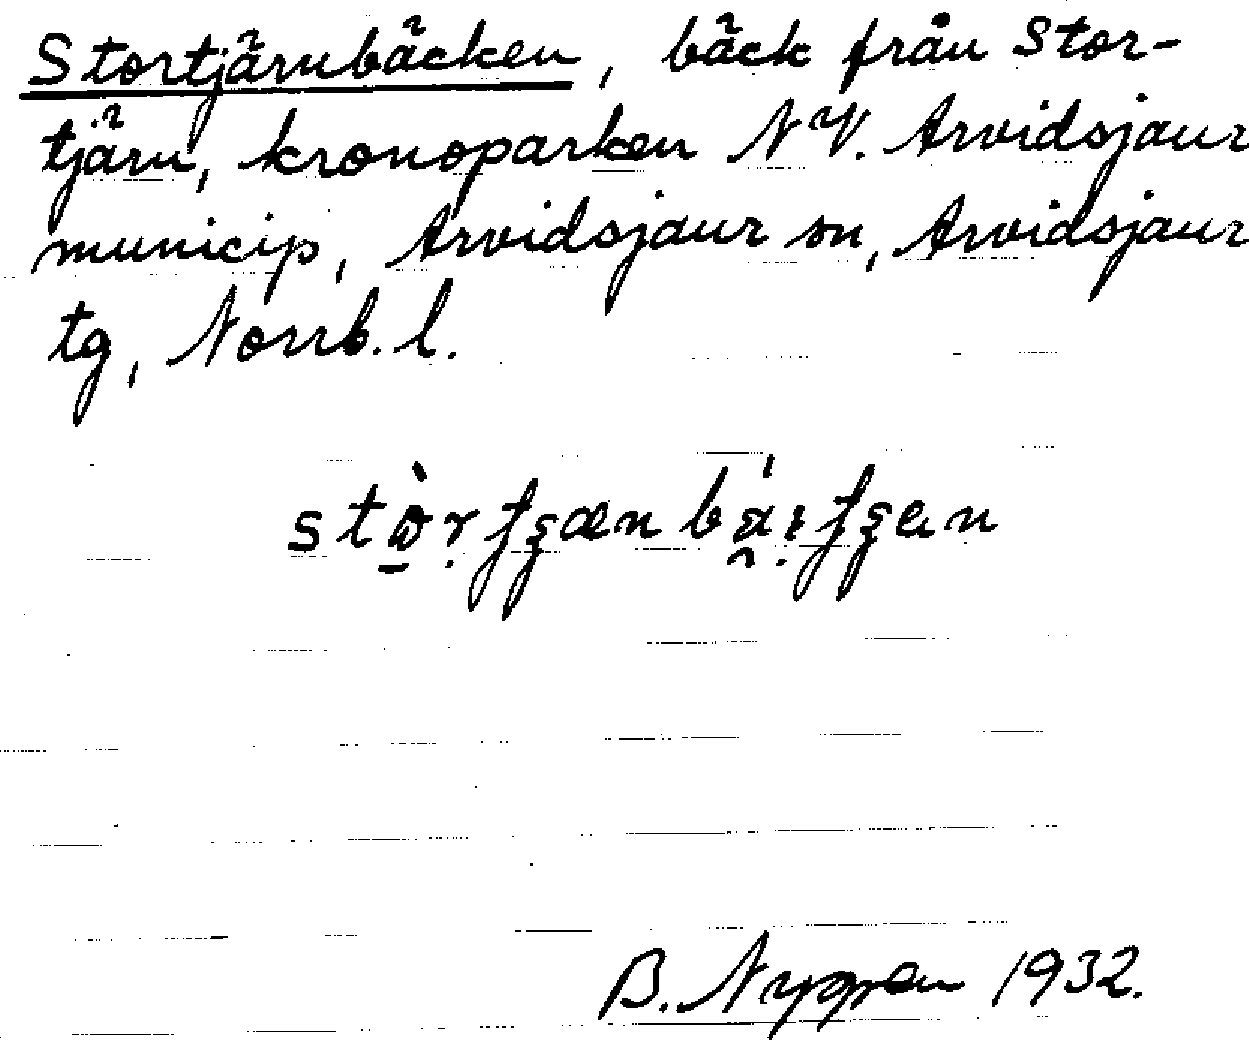 Stortjärnbäcken, bäck från Stor-
tjärn, kronoparken NV. Arvidsjaur
municip, Arvidsjaur sn, Arvidsjaur
tg, Norrb. l.
B. Nygren 1932.